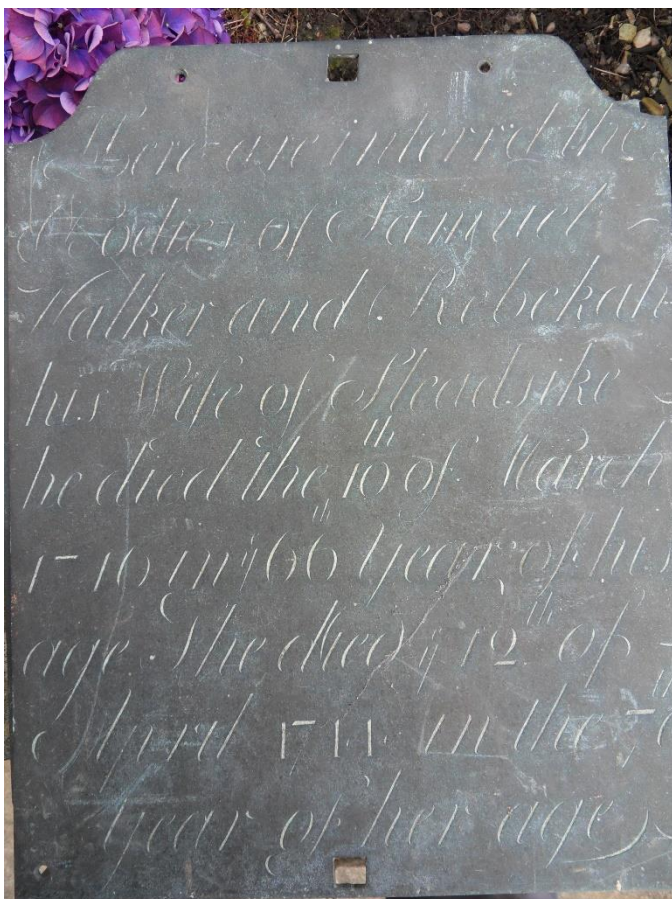 Here are interred the
Bodies of Samuel
Walker and Rebekah
his Wife of Sleadsyke
he died the 10th of March
1710 in ye 66th year of his
age. She died ye 12th of
April 1711 in the
year of her age